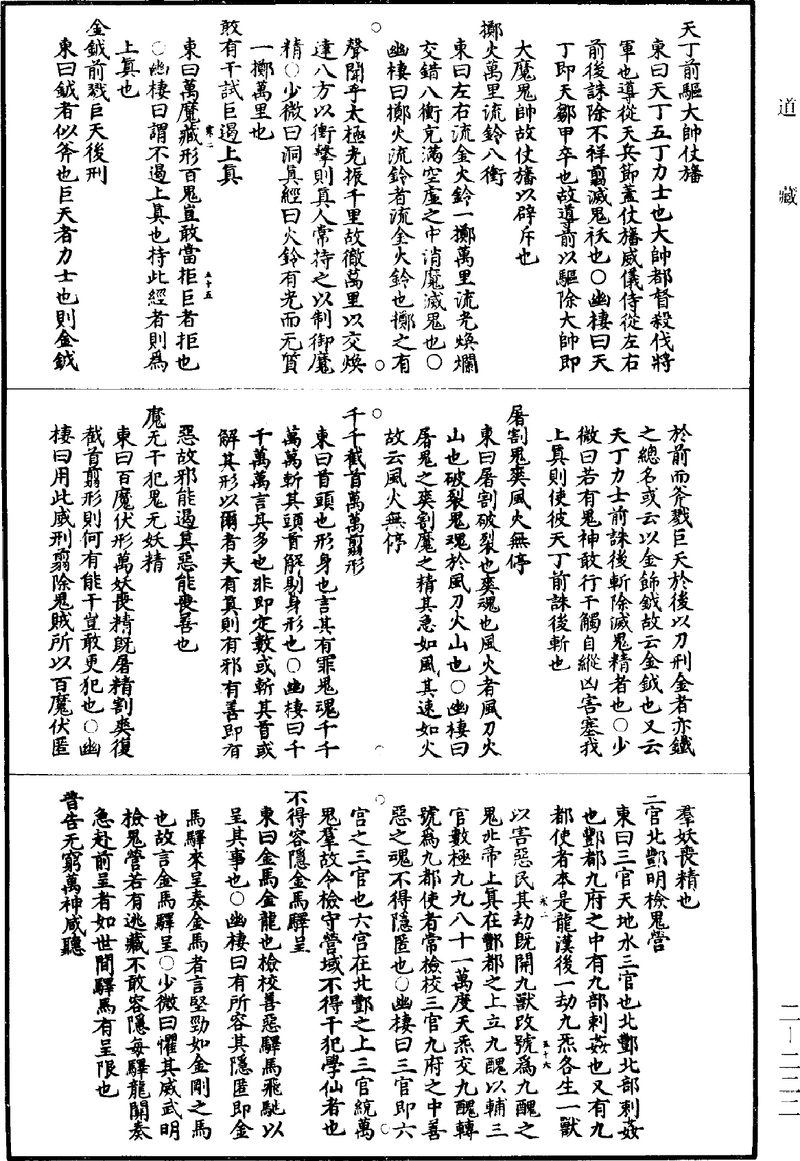 道藏
天丁前驅大帥仗旛
東曰天丁五丁力士也大帥都督殺伐將
軍也導從天兵節蓋仗旛威儀侍從左右
前後誅除不祥翦滅鬼袄也○幽棲曰天
丁即天鄒甲卒也故導前以驅除大帥即
大魔鬼帥故仗旛以辟斥也
擲火萬里流鈴八衝
東曰左右流金火鈴一擲萬里流光煥爛
交錯八衝充滿空虛之中消魔滅鬼也○
幽棲曰擲火流鈴者流金火鈴也擲之有
聲聞乎太極光振千里故徹萬里以交煥
達八方以衝擊則真人常持之以制御魔
精○少微曰洞真經曰火鈴有光而无質
一擲萬里也
敢有干試巨遏上真
東曰萬魔藏形百鬼豈敢當拒巨者拒也
○幽棲曰謂不遏上真也持此經者則為
上真也
金鉞前戮巨天後刑
東曰鉞者似斧也巨天者力士也則金鉞
於前而斧戮巨天於後以刀刑金者亦鐵
之總名或云以金飾鉞故云金鉞也又云
天丁力士前誅後斬除滅鬼精者也○少
微曰若有鬼神敢行干觸自縱凶害塞我
上真則使彼天丁前誅後斬也
屠割鬼爽風火無停
東曰屠割破裂也爽魂也風火者風刀火
山也破裂鬼魂於風刀火山也○幽棲曰
屠鬼之爽割魔之精其急如風其速如火
故云風火無停
千千截首萬萬翦形
東曰首頭也形身也言其有罪鬼魂千千
萬萬斬其頭首解剔身形也○幽棲曰千
千萬萬言其多也非即定數或斬其首或
解其形以爾者夫有真則有邪有善即有
惡故邪能遏真惡能喪善也
魔无干犯鬼无妖精
東曰百魔伏形萬妖喪精既屠精割爽復
截首翦形則何有能干豈敢更犯也○幽
棲曰用此威刑翦除鬼賊所以百魔伏匿
羣妖喪精也
三官北酆明檢鬼營
東曰三官天地水三官也北酆北部刺姦
也酆都九府之中有九部刺姦也又有九
都使者本是龍漢後一劫九炁各生一獸
以害惡民其劫既開九獸改號為九醜之
鬼北帝上真在酆都之上立九醜以輔三
官數極九九八十一萬度天炁交九醜轉
號為九都使者常檢校三官九府之中善
惡之魂不得隱匿也○幽棲曰三官即六
宮之三官也六宮在北酆之上三官統萬
鬼羣故令檢守營域不得干犯學仙者也
不得容隱金馬驛呈
東曰金馬金龍也檢校善惡驛馬飛馳以
呈其事也○幽棲曰有所容其隱匿即金
馬驛來呈奏金馬者言堅勁如金剛之馬
也故言金馬驛呈○少微曰懼其威武明
檢鬼營若有逃藏不敢容隱每驛龍關奏
急赴前呈者如世間驛馬有呈限也
普告无窮萬神咸聽
五十五
五十六
二—二二二